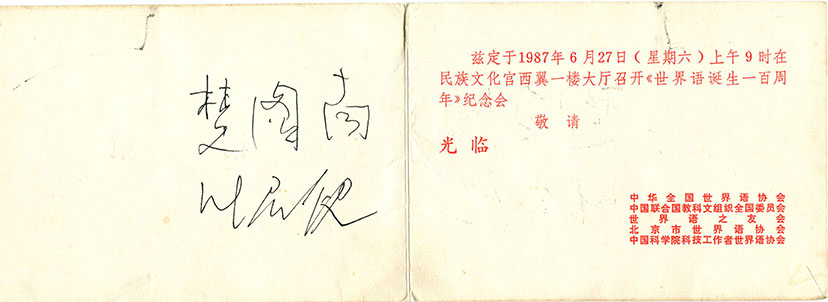 楚图南
叶君健
兹定于1987年6月27日(星期六)上午9时在
民族文化宫西翼一楼大厅召开《世界语诞生一百周
年》纪念会
敬请
光临
中华全国世界语协会
中国联合国教科文组织全国委员会
世界语之友会
北京市世界语协会
中国科学院科技工作者世界语协会